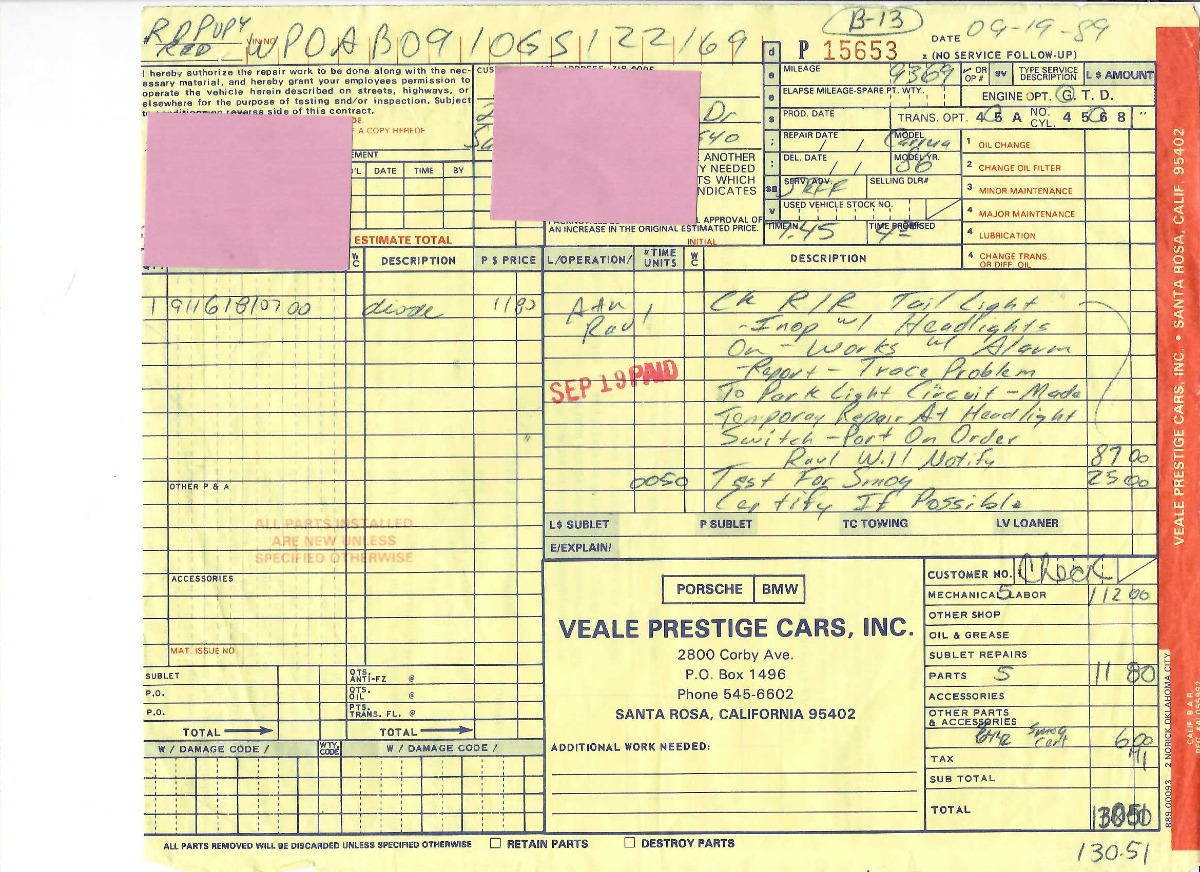 B-13
DATE 09-19-89
RED
VIN NO. WPOAB0910GS122169
P 15653 (NO SERVICE FOLLOW-UP)
I hereby authorize the repair work to be done along with the nec-
essary material, and hereby grant your employees permission to
operate the vehicle herein described on streets, highways, or
elsewhere for the purpose of testing and/or inspection. Subject
reverse side of this contract.
A COPY HEREOF
Dr
MILEAGE 9369
OR OP # SV TYPE SERVICE DESCRIPTION L $ AMOUNT
ELAPSE MILEAGE-SPARE PT. WTY.
ENGINE OPT. G. T. D.
PROD. DATE
TRANS. OPT. 4 5 A NO. CYL. 4 5 6 8
REPAIR DATE / /
MODEL Carrera
1 OIL CHANGE
DEL. DATE / /
MODEL YR. 86
2 CHANGE OIL FILTER
SERV. ADV. JEFF
SELLING DLR#
3 MINOR MAINTENANCE
USED VEHICLE STOCK NO.
4 MAJOR MAINTENANCE
TIME IN 7:45
TIME PROMISED
4 LUBRICATION
4 CHANGE TRANS. OR DIFF. OIL
DATE TIME BY
ANOTHER
Y NEEDED
TS WHICH
NDICATES
APPROVAL OF
AN INCREASE IN THE ORIGINAL ESTIMATED PRICE.
INITIAL
ESTIMATE TOTAL
W C DESCRIPTION P $ PRICE L/OPERATION/ "TIME UNITS W C DESCRIPTION
1 911 618 107 00 diode 11 80
Raul
Ck R/R Tail Light
-Inop w/ Headlights
On - Works w/ Alarm
-Report - Trace Problem
To Park Light Circuit - Made
Temporay Repair At Headlight
Switch - Part On Order
Raul Will Notify 87 00
0050 Test For Smog 25 00
Certify If Possible
SEP 19 PAID
OTHER P & A
ALL PARTS INSTALLED
ARE NEW UNLESS
SPECIFIED OTHERWISE
ACCESSORIES
MAT. ISSUE NO.
L$ SUBLET P SUBLET TC TOWING LV LOANER
E/EXPLAIN/
PORSCHE BMW
VEALE PRESTIGE CARS, INC.
2800 Corby Ave.
P.O. Box 1496
Phone 545-6602
SANTA ROSA, CALIFORNIA 95402
ADDITIONAL WORK NEEDED:
CUSTOMER NO. Check
MECHANICAL LABOR 5 112 00
OTHER SHOP
OIL & GREASE
SUBLET REPAIRS
PARTS 5 11 80
ACCESSORIES
OTHER PARTS & ACCESSORIES
Smog Cert 6 00
TAX 71
SUB TOTAL
TOTAL
130.51
SUBLET
P.O.
P.O.
QTS. ANTI-FZ @
QTS. OIL @
PTS. TRANS. FL. @
TOTAL TOTAL
W / DAMAGE CODE / WTY. CODE W / DAMAGE CODE /
ALL PARTS REMOVED WILL BE DISCARDED UNLESS SPECIFIED OTHERWISE RETAIN PARTS DESTROY PARTS
VEALE PRESTIGE CARS, INC. • SANTA ROSA, CALIF. 95402
889-00093 2 NORICK OKLAHOMA CITY
CALIF B.A.R.